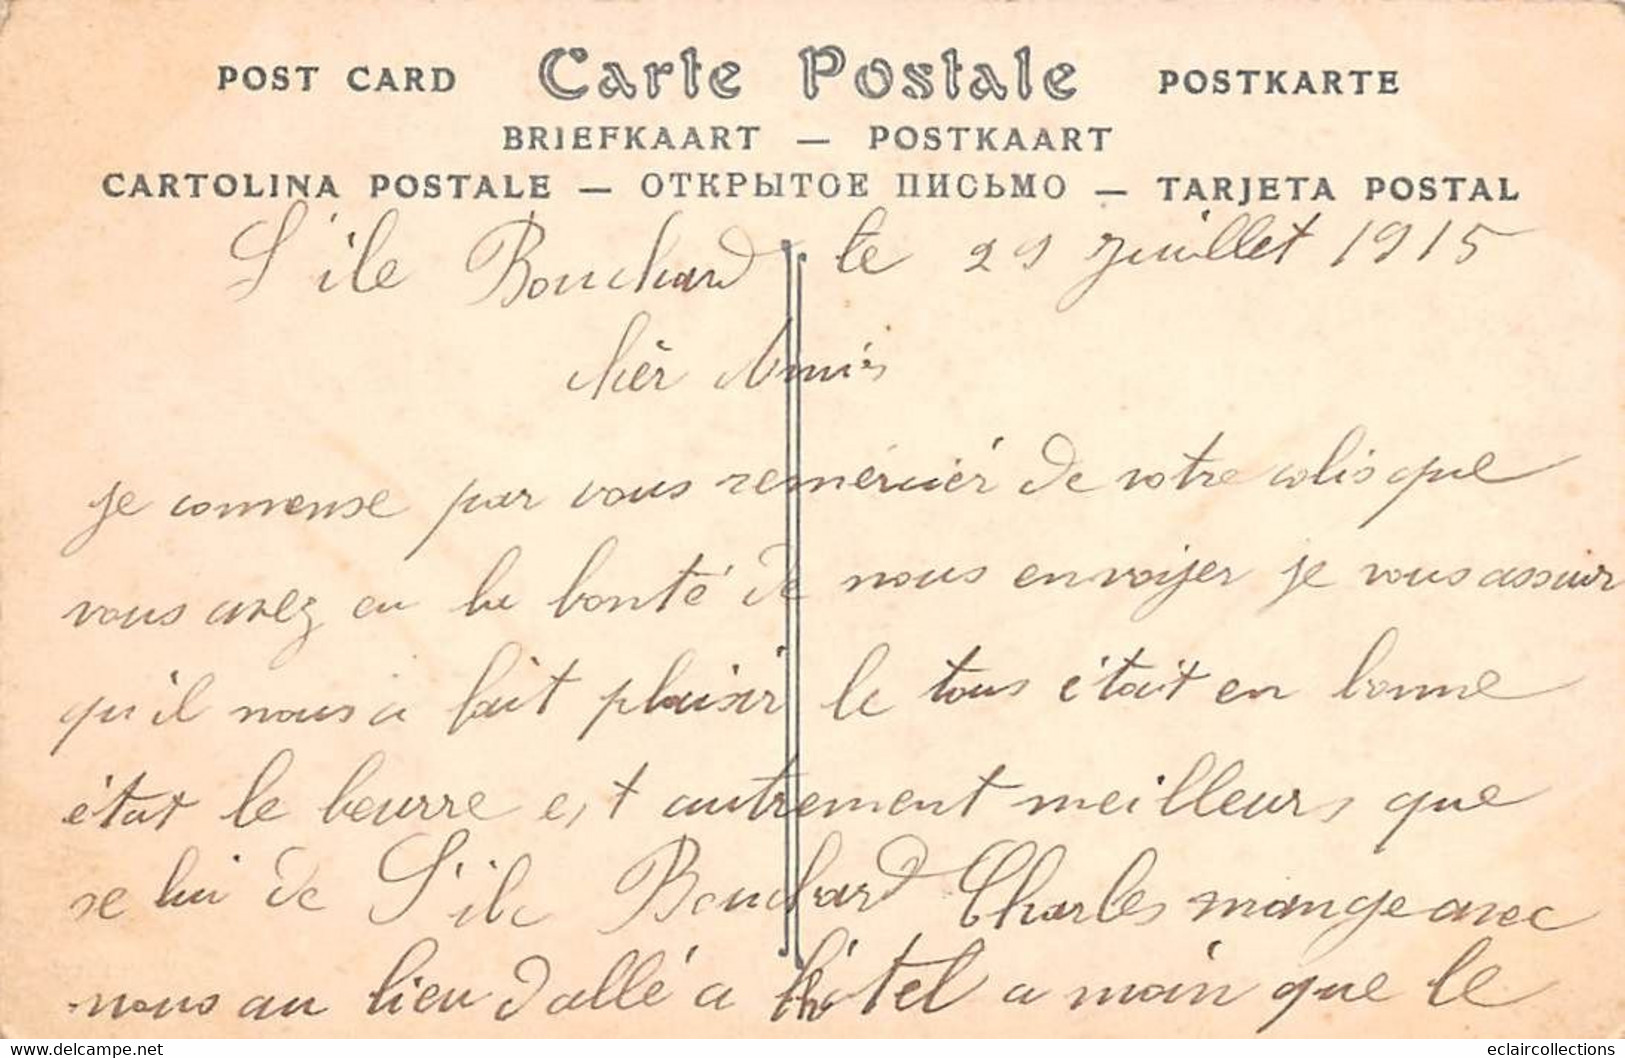 POST CARD Carte Postale POSTKARTE
BRIEFKAART — POSTKAART
CARTOLINA POSTALE — ОТКРЫТОЕ ПИСЬМО — TARJETA POSTAL
L'ile Bouchard le 29 Juillet 1915
chèr Amis
je comense par vous remérciér de votre colis que
vous avez eu la bonté de nous envoyer je vous assur
qu'il nous a fait plaisir le tous était en bonne
état le beurre est autrement meilleurs que
se lui de L'ile Bouchard Charles mange avec
nous au lieu d'allé a hôtel a main que le
www.delcampe.net
eclaircollections